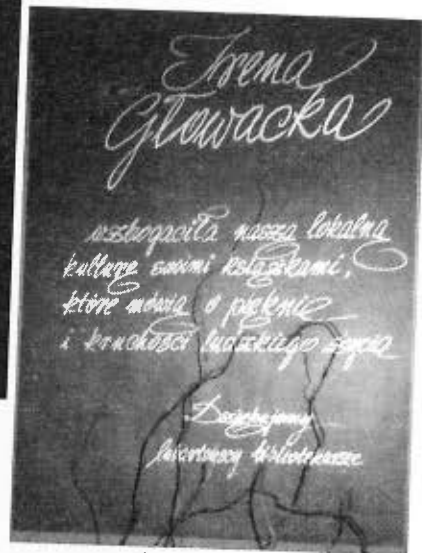 Irena
Głowacka
wzbogaciła naszą lokalną
kulturę swoimi książkami,
które mówią o pięknie
i kruchości ludzkiego życia
Dziękujemy
lubartowscy bibliotekarze